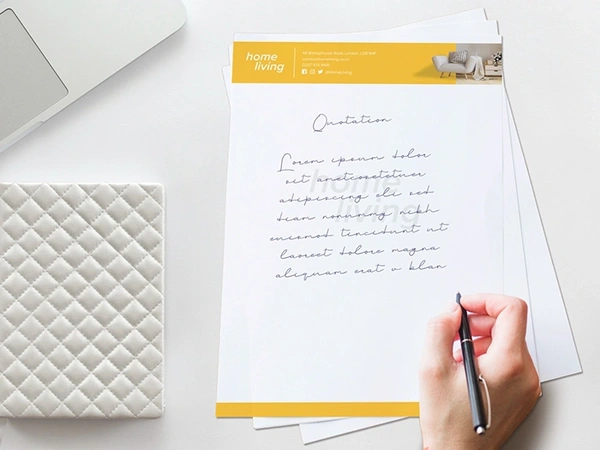 home
living
Quotation
Lorem ipsum dolor
sit ametconsectetuer
adipiscing eli sed
diam nonummy nibh
euismod tincidunt ut
laoreet dolore magna
aliquam erat v blan
home
living